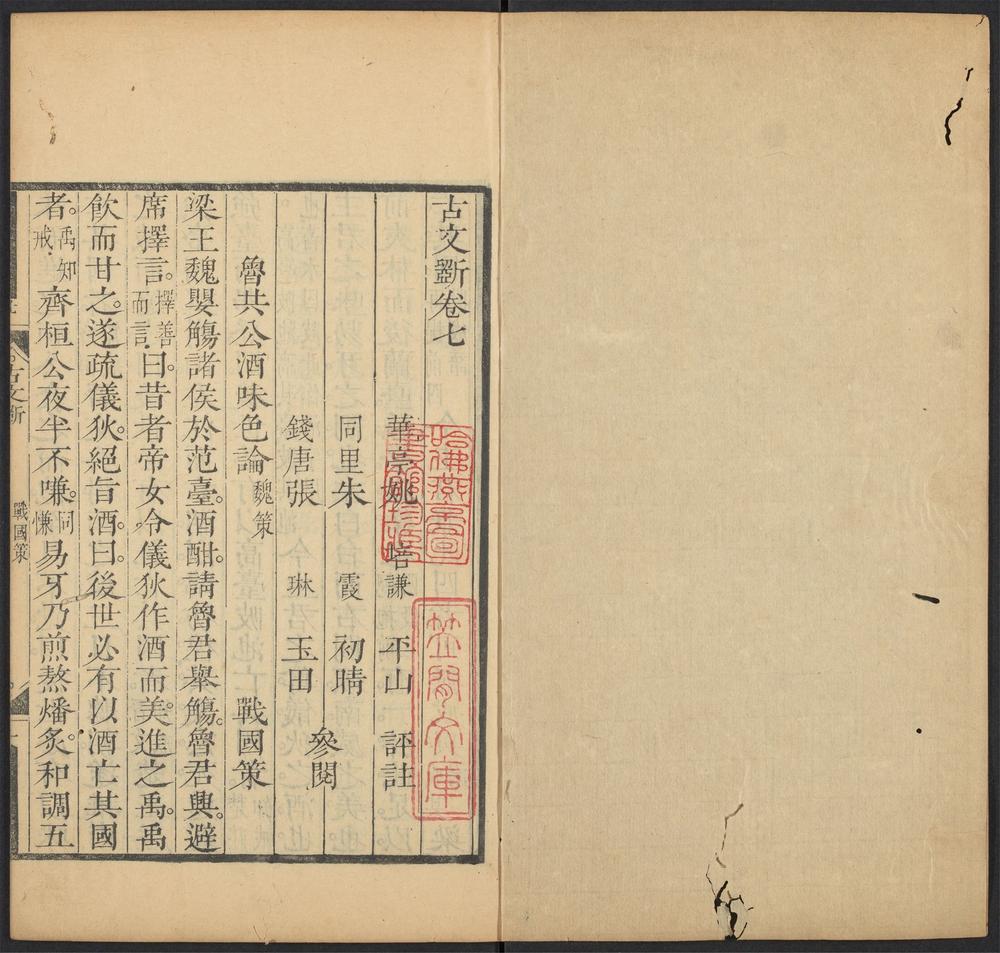 古文斵卷七
華亭姚培謙平山評註
同里朱霞初晴
錢唐張琳玉田參閱
魯共公酒味色論魏策 戰國策
梁王魏嬰觴諸侯於范臺。酒酣。請魯君舉觴。魯君興。避
席擇言。擇善而言。曰。昔者帝女令儀狄作酒而美。進之禹。禹
飲而甘之。遂疏儀狄。絕旨酒。曰。後世必有以酒亡其國
者。禹知戒。齊桓公夜半不嗛。同慊易牙乃煎熬燔炙。和調五
古文斵
戰國策
哈佛燕京圖書館珍藏
文庫